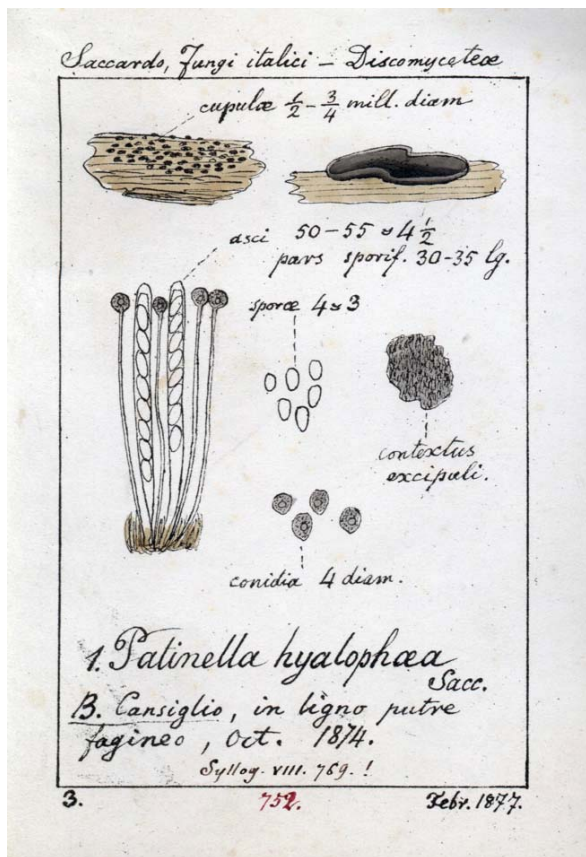 Saccardo, Fungi italici – Discomyceteæ
cupulæ 1/2 – 3/4 mill. diam
asci 50–55 ≈ 4 1/2
pars sporif. 30-35 lg.
sporæ 4 ≈ 3
contextus
excipuli.
conidia 4 diam.
1. Patinella hyalophæa
Sacc.
B. Cansiglio, in ligno putre
fagineo, Oct. 1874.
Syllog. VIII. 769. !
3. 752. Febr. 1877.